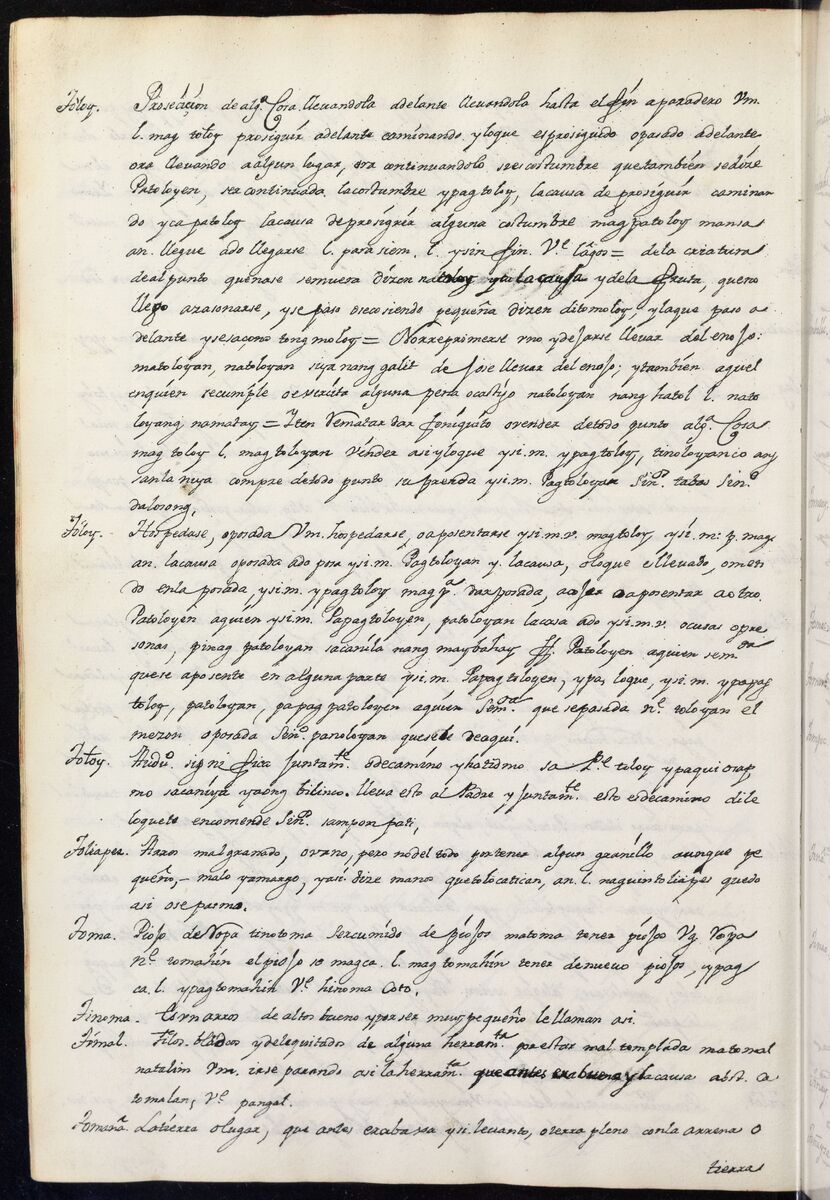 Toloy. Prosecucion de alg.ª Cosa llevandola adelante llevandola hasta el fin aparadero Vm.
l. mag toloy proseguir adelante caminando, y loque es proseguido opasado adelante
ora llevando aalgun lugar, ora continuandolo sies costumbre que tambien sedize
Patoloyen, sea continuada la costumbre ypagtoloy, la causa de proseguir caminan
do yca patoloy la causa de proseguir alguna costumbre magpatoloy mansa
an. llegue ado llegarse l. para siem. l. ysin fin. V.e lagos = de la criatura
de al punto que nase semuera dizen natoloy y la causa y de la fruta, que no
llego azasonarse, y se paso osecosiendo pequeña dizen ditomoloy, y laque paso a
delante y sesaçono tong moloy = No reprimerse uno y dejarse llevar del enojo:
matoloyan, natoloyan siya nang galit de Jose llevar del enojo; y tambien aquel
enquien secumple o executa alguna pena o castigo natoloyan nang hatol l. nato
loyang namatay = Iten Rematar dar finiquito o vender de todo punto alg.ª Cosa
mag toloy l. magtoloyan vender asi y loque ysi.m. ypagtoloy, tinoloyanco ang
sanla niya compre de todo punto su prenda ysi.m. Pagtoloyan Sin.º tabas Sin.º
dalosong.
Toloy. Hospedase, oposada Vm. hospedarse, o aposentarse ysi.m.v. magtoloy ysi.m: p. mag
an. la causa oposada ado posa ysi.m. Pagtoloyan y. la causa, oloque es llevado, o meti
do en la posada ysi.m. ypagtoloy mag p.ª dar posada, acojer o aposentar a otro.
Patoloyen aquien ysi.m. Papagtoloyen, patoloyan la casa ado ysi.m.v. o cusas o pre
sonas, pinag patoloyan sacanila nang maybahay ff. Patoloyen aquien sem.da
quese aposente en alguna parte ysi.m. Papagtoloyen, ypa, loque, ysi.m. ypapag
toloy, patoloyan, papagpatoloyen aquien Sem.da que sepasada N.e toloyan el
mezon oposada Sin.º panoloyan que sale de aqui.
Toloy. Audu.º signifiva juntam.te o de camino ycatidmo sa P.e toloy ypaqui osap
mo sacaniya yaong bilinco. lleva esto al Padre y juntam.te esto de camino dile
loquete encomende Sin.º sampon pati,
Toliapes. Arros mal granado, o vano, pero no del todo por tener algun granillo aunque pe
queño, – malo yamargo, yasi dize mano quetolocatican, an. l. naguintoliapes quedo
asi o se pasmo.
Toma. Piojo de Ropa tinotoma ser cumido de piojos matoma tener piojos Vg. Ropa
N.e tomahin el piojo se magca. l. magtomahin tener de nuevo piojos, ypag
ca. l. ypagtomahin V.e hinoma Coto.
Tinoma. Es vn arros de altos bueno y por ser muy pequeño le llaman asi.
Tomal. Filos blandos y delequitados de alguna herram.ta por estar mal templada matomal
natalin Vm. irse parando asi la herram.ta que antes era buena y la causa abst. ca
tomalan, V.e pangal.
Tomana. La tierra o lugar, que antes era baxa ysi levanto, o terra pleno con la arrena o
tierra